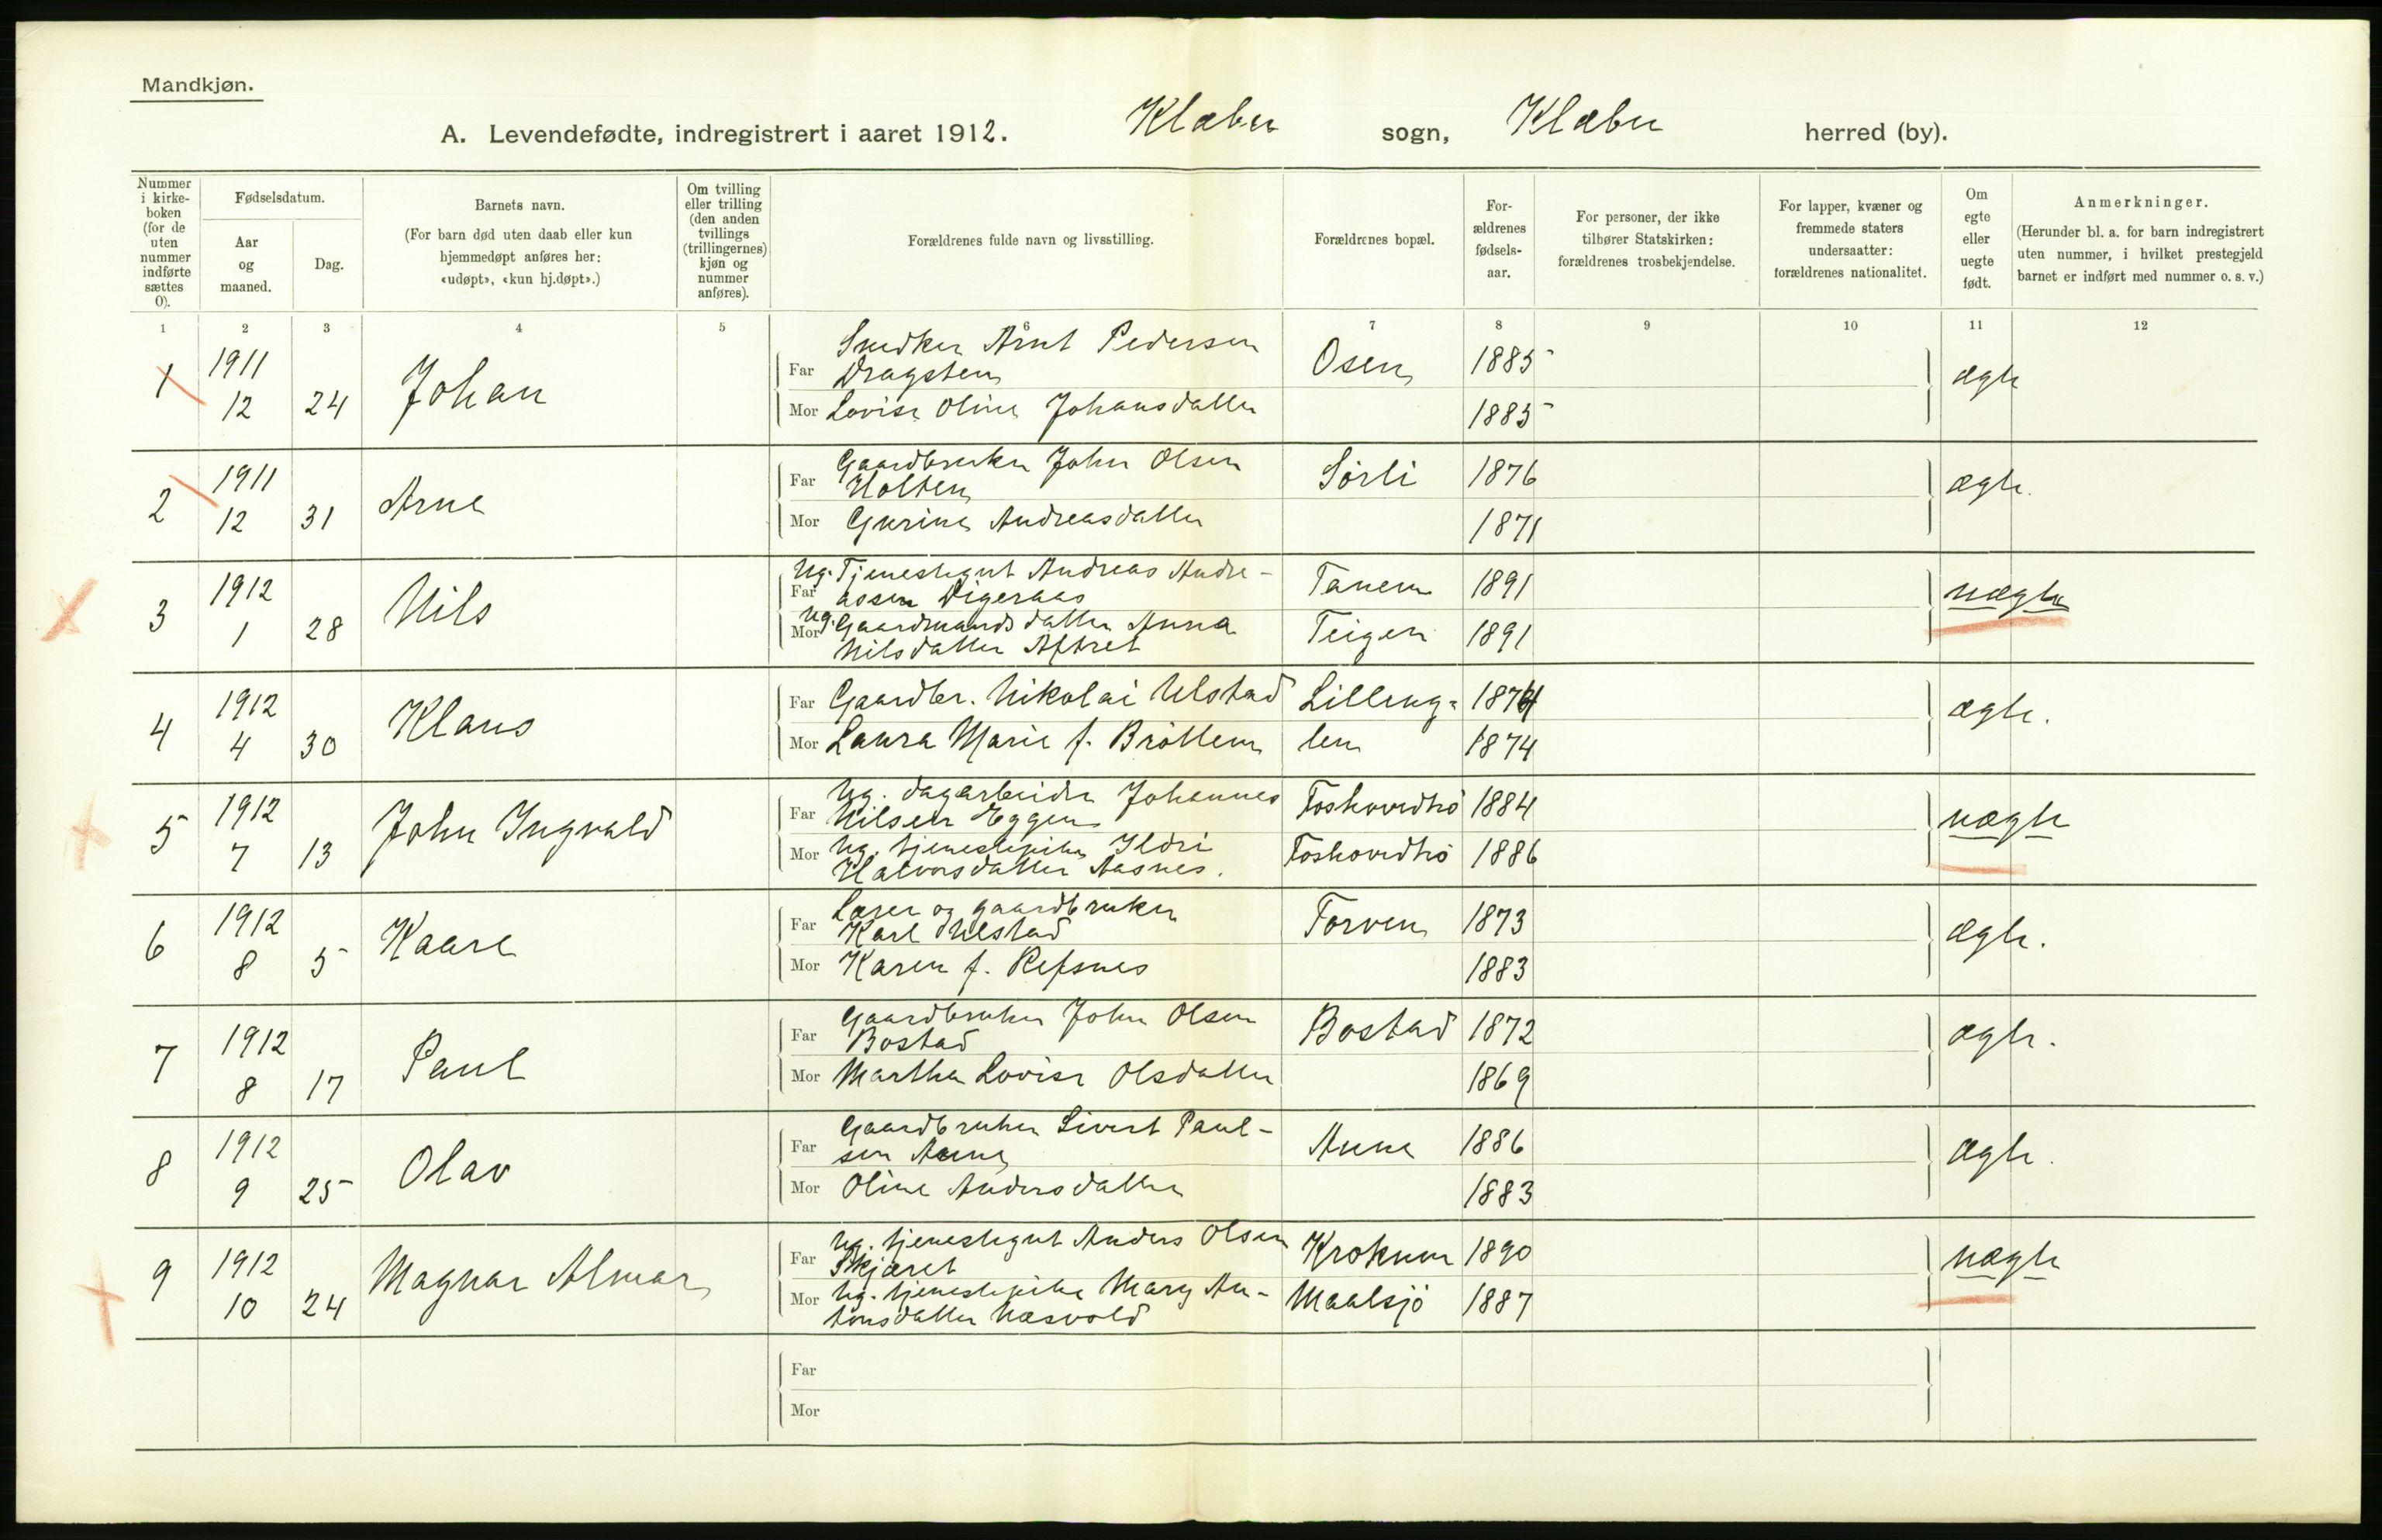 Mandkjøn.
A. Levendefødte, indregistrert i aaret 1912. Klæbu sogn, Klæbu herred (by).
Nummer i kirke-boken (for de uten nummer indførte sættes 0).
Fødselsdatum.
Aar og maaned.
Dag.
Barnets navn.
(For barn død uten daab eller kun hjemmedøpt anføres her: «udøpt», «kun hj.døpt».)
Om tvilling eller trilling (den anden tvillings (trillingernes) kjøn og nummer anføres).
Forældrenes fulde navn og livsstilling.
Forældrenes bopæl.
For-ældrenes fødsels-aar.
For personer, der ikke tilhører Statskirken: forældrenes trosbekjendelse.
For lapper, kvæner og fremmede staters undersaatter: forældrenes nationalitet.
Om egte eller uegte født.
Anmerkninger.
(Herunder bl. a. for barn indregistrert uten nummer, i hvilket prestegjeld barnet er indført med nummer o. s. v.)
1 2 3 4 5 6 7 8 9 10 11 12
1 1911 12 24 Johan
Far Snedker Arnt Pedersen Dragsten Osen 1885 ægte
Mor Lovise Oline Johansdatter 1885
2 1911 12 31 Arne
Far Gaardbruker John Olsen Holten Sörli 1876 ægte.
Mor Gurine Andreasdatter 1871
3 1912 1 28 Nils
Far Ug. Tjenestegut Andreas Andre-assen Digeraas Tanem 1891 uægte
Mor Ug. Gaardmandsdatter Anna Nilsdatter Aftret Teigen 1891
4 1912 4 30 Klaus
Far Gaardbr. Nikolai Ulstad Lilleug= 1874 ægte.
Mor Laura Marie f. Bröttem len 1874
5 1912 7 13 John Ingvald
Far Ug. dagarbeider Johannes Nilsen Eggen Foshovdtrö 1884 uægte
Mor Ug. tjenestepike Ildri Halvorsdatter Aasnes. Foshovdtrö 1886
6 1912 8 5 Kaare
Far Lærer og gaardbruker Karl Ulstad Torven 1873 ægte.
Mor Karen f. Refsnes 1883
7 1912 8 17 Paul
Far Gaardbruker John Olsen Bostad Bostad 1872 ægte.
Mor Martha Lovise Olsdatter 1869
8 1912 9 25 Olav
Far Gaardbruker Sivert Paul-sen Aune Aune 1886 ægte.
Mor Oline Andersdatter 1883
9 1912 10 24 Magnar Almar
Far Ug. tjenestegut Anders Olsen Skjæret Krokum 1890 uægte
Mor Ug. tjenestepike Mary An-tonsdatter Næsvold Maalsjö 1887
Far
Mor